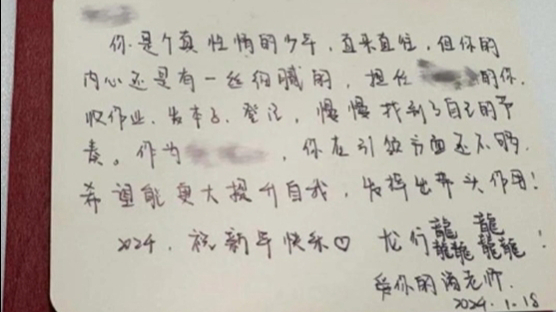 你是个真性情的少年,直来直往,但你的
内心还是有一丝细腻的,担任的你,
收作业、发本子、登记,慢慢找到了自己的节
奏。作为,你在引领方面还不够,
希望能更大提升自我,发挥出带头作用!
2024,祝新年快乐♡ 龙行龘龘!
爱你的老师.
2024.1.18